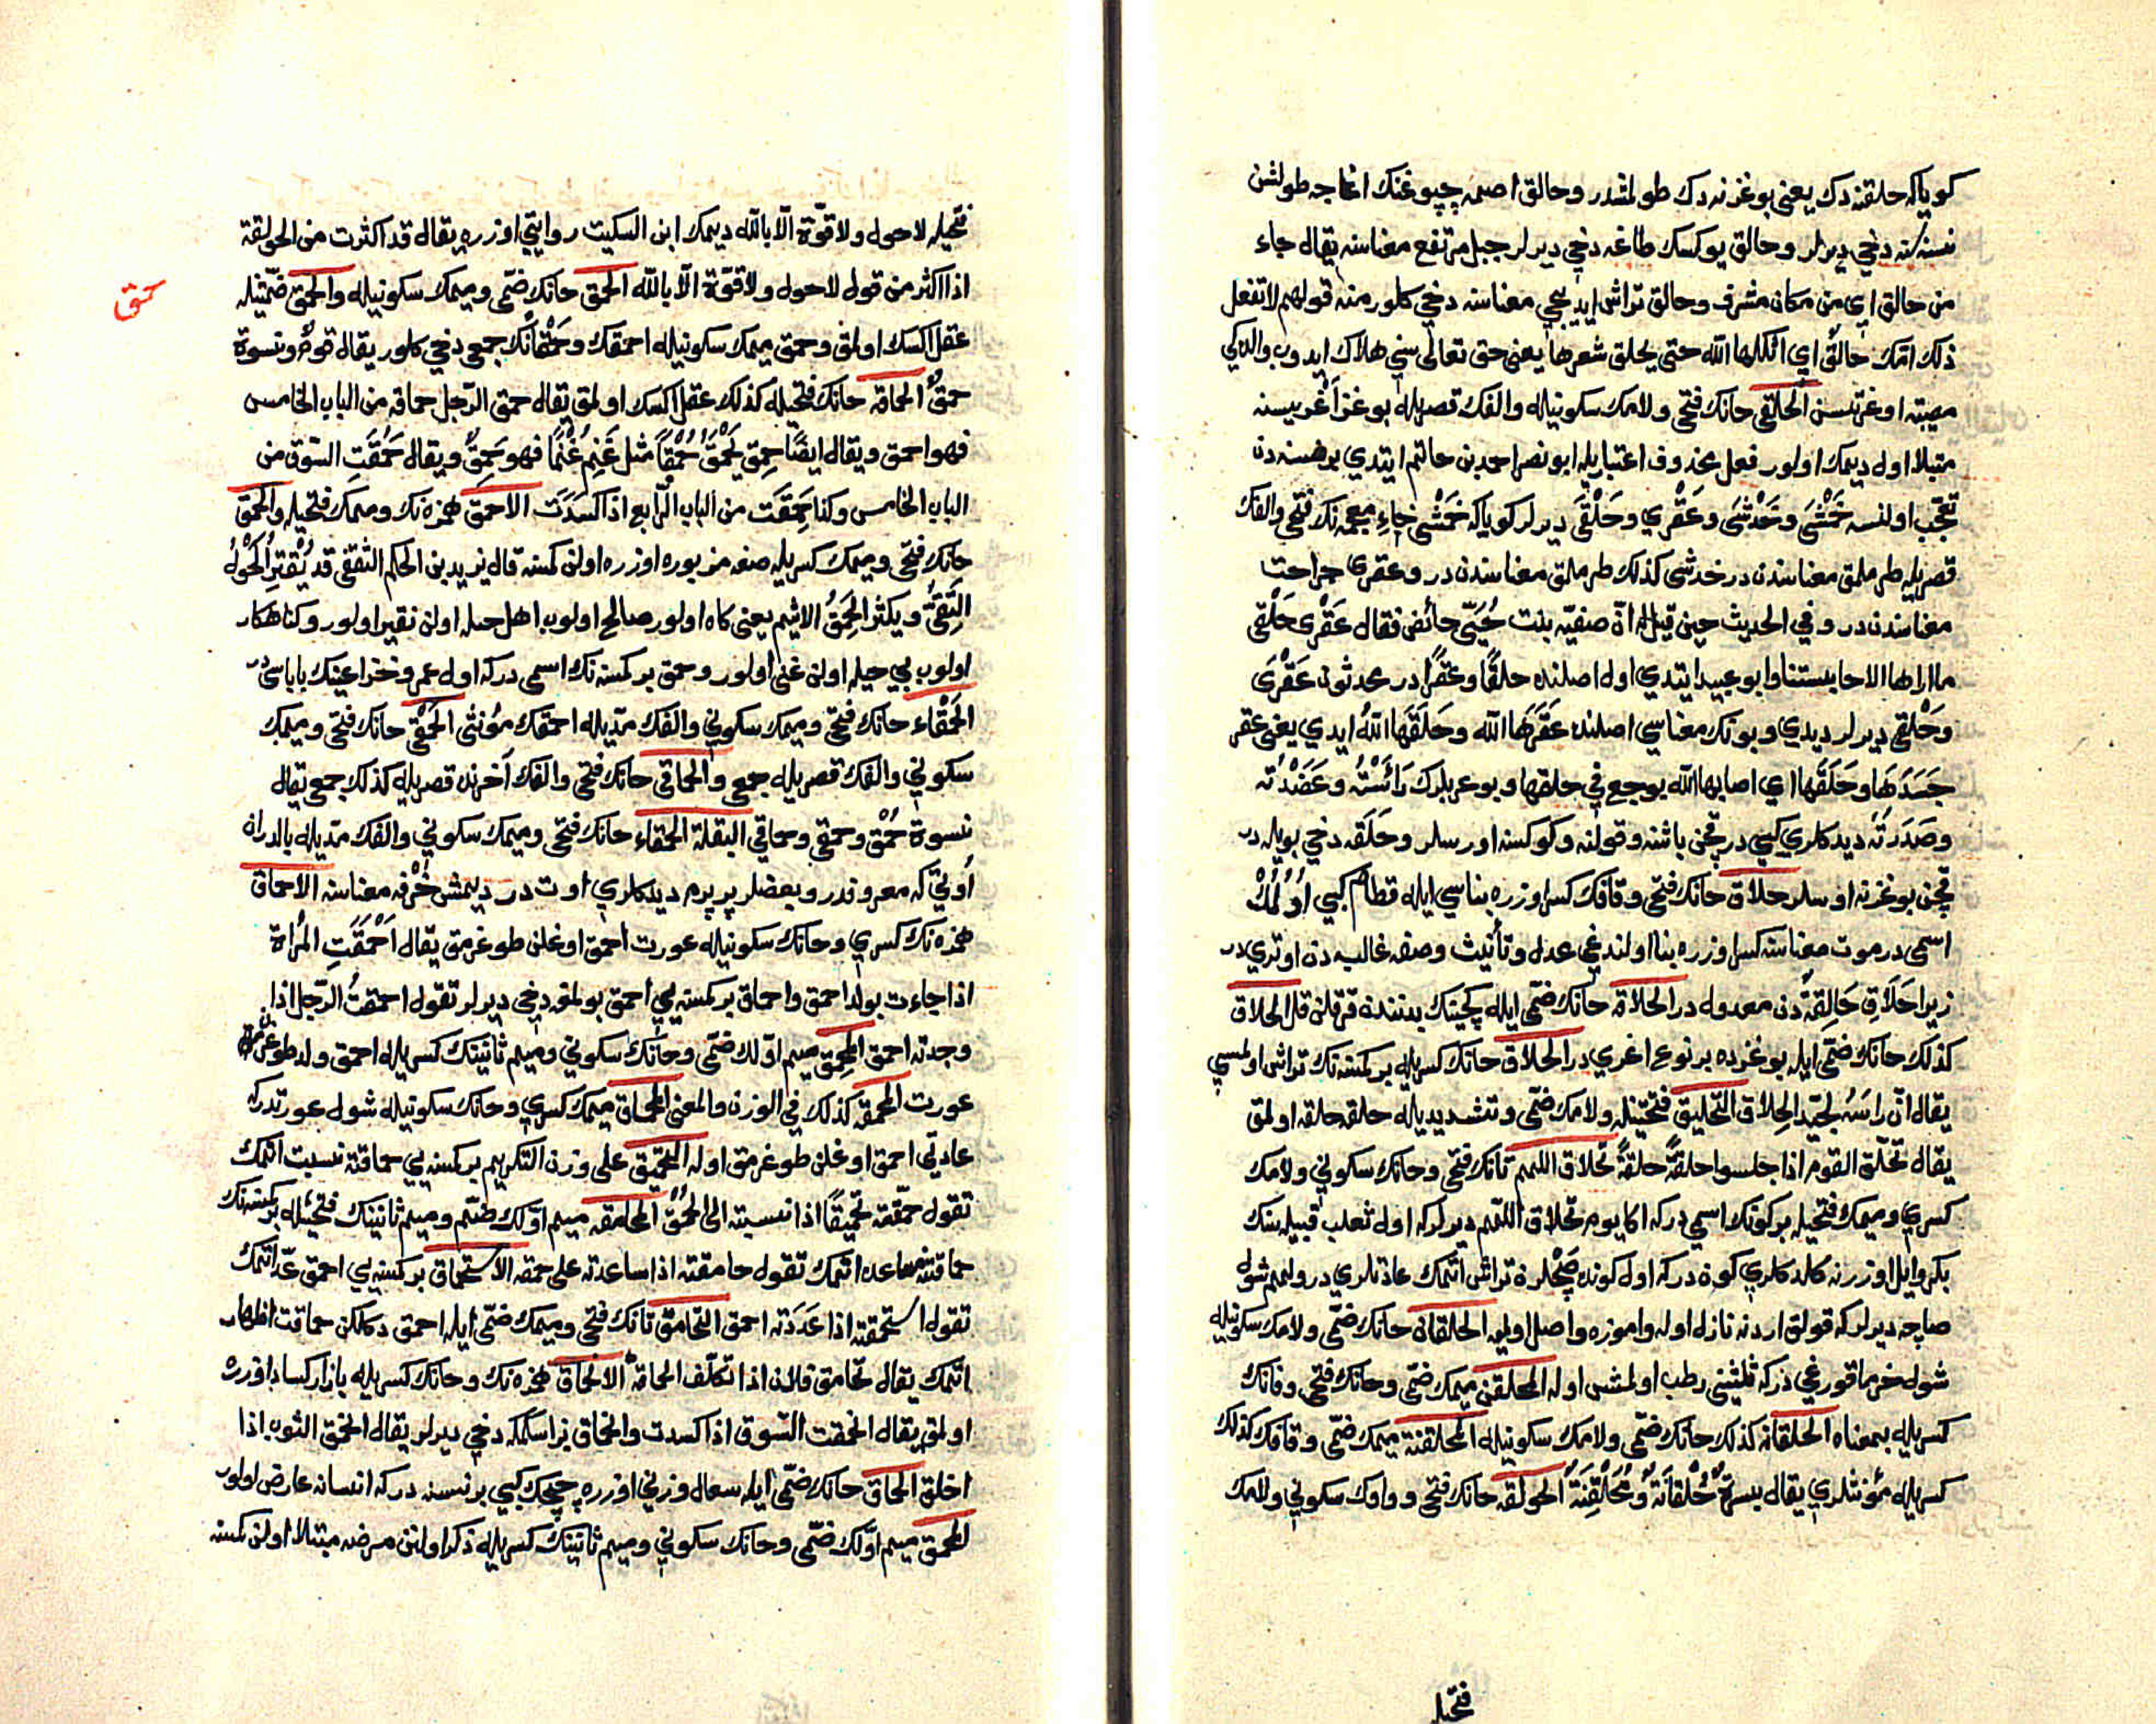 كويا كه حلقنه دك يعنى بوغزنه دك طولمشدر وحالق اصمه چپوغنك اغاجه طولشن
نسنه سنه دخي ديرلر وحالق يوكسك طاغه دخي ديرلر جبل مرتفع معناسنه يقال جاء
من حالق اي من مكان مشرف وحالق تراش ايديجي معناسنه دخي كلور منه قولهم لا تفعل
ذلك امك حالق اي اثكلها الله حتى يحلق شعرها يعنى حق تعالى سني هلاك ايدوب والدكي
مصيبته اوغرتسن الحلقى حانك فتحى ولامك سكونيله والفك قصريله بوغز اغريسنه
مبتلا اول ديمك اولور فعل محذوف اعتباريله ابو نصر احمد بن حاتم ايتدي بر نسنه دن
تعجب اولنسه خمشى وخدشى وعقرى وحلقى ديرلر كويا كه خمشى خاء معجمه نك فتحى والفك
قصريله طرملمق معناسندن در خدشى كذلك طرملمق معناسندن در وعقرى جراحت
معناسندن در وفي الحديث حين قيل له ان صفيه بنت حيي حائض فقال عقرى حلقى
ما اراها الا حابستنا وابو عبيد ايتدي اول اصلنده حلقا وعقرا در محدثون عقرى
وحلقى ديرلر ديدي وبونك معناسي اصلنده عقرها الله وحلقها الله ايدي يعنى عقر
جسدها وحلقها اي اصابها الله بوجع في حلقها وبو عربلرك رأسته وعضدته
وصدرته ديدكلري كبي در قچن باشنه وقولنه وكوكسنه اورسلر وحلقه دخي بويله در
قچن بوغزنه اورسلر حلاق حانك فتحى وقافك كسر اوزره بناسي ايله قطام كبي اولمك
اسمى در موت معناسنه كسر اوزره بنا اولندغي عدل وتأنيث وصفه غالبه دن اوتري در
زيرا حلاق حالقة دن معدوله در الحلاقه حانك ضمى ايله كچينك بدننده قرقلن قل الحلاق
كذلك حانك ضمى ايله بوغزده بر نوع اغري در الحلاق حانك كسريله بر كمسنه نك تراش اولمسي
يقال ان راسه لجيد الحلاق التحلق فتحتينله ولامك ضمى وتشديديله حلقه حلقه اولمق
يقال تحلق القوم اذا جلسوا حلقة حلقة تحلاق اللمم تانك فتحى وحانك سكوني ولامك
كسري وميمك فتحيله بر كونك اسمي در كه اكا يوم تحلاق اللمم ديرلر كه اول ثعلب قبيله سنك
بكر وايل اوزرنه كلدكلري كوندر كه اول كونده صچلرن تراش اتمك عادتلري در ولمم شول
صاچه ديرلر كه قولق اردنه نازل اوله واموزه واصل اولميه الحلقان حانك ضمى ولامك سكونيله
شول خرما قوروغي در كه ثلثيني رطب اولمش اوله المحلقن ميمك ضمى وحانك فتحى وقافك
كسريله بمعناه الحلقانه كذلك حانك ضمى ولامك سكونيله المحلقنة ميمك ضمى وقافك كذلك
كسريله مؤنثلري يقال بسرة حلقانة ومحلقنة الحولقه حانك فتحى وواوك سكوني ولامك
فتحيله
فتحيله لا حول ولا قوة الا بالله ديمك ابن السكيت روايتي اوزره يقال قد اكثرت من الحولقة
اذا اكثر من قول لا حول ولا قوة الا بالله الحمق حانك ضمى وميمك سكونيله والحمق ضمتينله
عقل اكسك اولمق وحمق ميمك سكونيله احمقك وحمقانك جمعى دخي كلور يقال قوم ونسوة
حمق الحماقه حانك فتحيله كذلك عقل اكسك اولمق يقال حمق الرجل حماقه من الباب الخامس
فهو احمق ويقال ايضا حمق يحمق حمقا مثل غنم غنما فهو حمق ويقال حمقت السوق من
الباب الخامس وكذا حمقت من الباب الرابع اذا كسدت الاحمق همزه نك وميمك فتحيله والحمق
حانك فتحى وميمك كسريله صفه مزبوره اوزره اولن كمسنه قال يزيد بن الحكم الثقفى قد يقتر الحول
التقي ويكثر الحمق الاثيم يعنى كاه اولور صالح اولوب اهل حيله اولن فقير اولور وكناهكار
اولوب بي حيله اولن غنى اولور وحمق بر كمسنه نك اسمى در كه اول عمرو خزاعينك باباسى در
الحمقاء حانك فتحى وميمك سكوني والفك مديله احمقك مؤنثى الحمقى حانك فتحى وميمك
سكوني والفك قصريله جمعى والحماقى حانك فتحى والفك آخرنده قصريله كذلك جمعى يقال
نسوة حمق وحمقى وحماقي البقلة الحمقاء حانك فتحى وميمك سكوني والفك مديله بالدران
اوتي كه معروفدر وبعضلر پرپرم ديدكلري اوت در ديمش خرفه معناسنه الاحماق
همزه نك كسري وحانك سكونيله عورت احمق اوغلن طوغرمق يقال احمقت المرأة
اذا جاءت بولد احمق واحماق بر كمسنه يي احمق بولمغه دخي ديرلر تقول احمقت الرجل اذا
وجدته احمق المحمق ميم اولك ضمى وحانك سكوني وميم ثانينك كسريله احمق ولد طوغرن
عورت المحمقه كذلك في الوزن والمعنى المحماق ميمك كسري وحانك سكونيله شول عورتدر كه
عادتي احمق اوغلن طوغرمق اوله التحميق على وزن التكريم بر كمسنه يي حماقته نسبت اتمك
تقول حمقته تحميقا اذا نسبته الى الحمق المحامقه ميم اولك ضمى وميم ثانينك فتحيله بر كمسنه نك
حماقتنه مساعده اتمك تقول حامقته اذا ساعدته على حمقه الاستحماق بر كمسنه يي احمق عد اتمك
تقول استحمقته اذا عددته احمق التحامق تانك فتحى وميمك ضمى ايله احمق دكلكن حماقت اظهار
اتمك يقال تحامق فلان اذا تكلف الحماقة الانحماق همزه نك وحانك كسريله بازار كساد اوزره
اولمق يقال انحمقت السوق اذا كسدت وانحماق بز اسكمكه دخي ديرلر يقال انحمق الثوب اذا
اخلق الحماق حانك ضمى ايله سعال وزني اوزره چچك كبي بر نسنه در كه انسانه عارض اولور
المحمق ميم اولك ضمى وحانك سكوني وميم ثانينك كسريله ذكر اولنن مرضه مبتلا اولن كمسنه
حمق